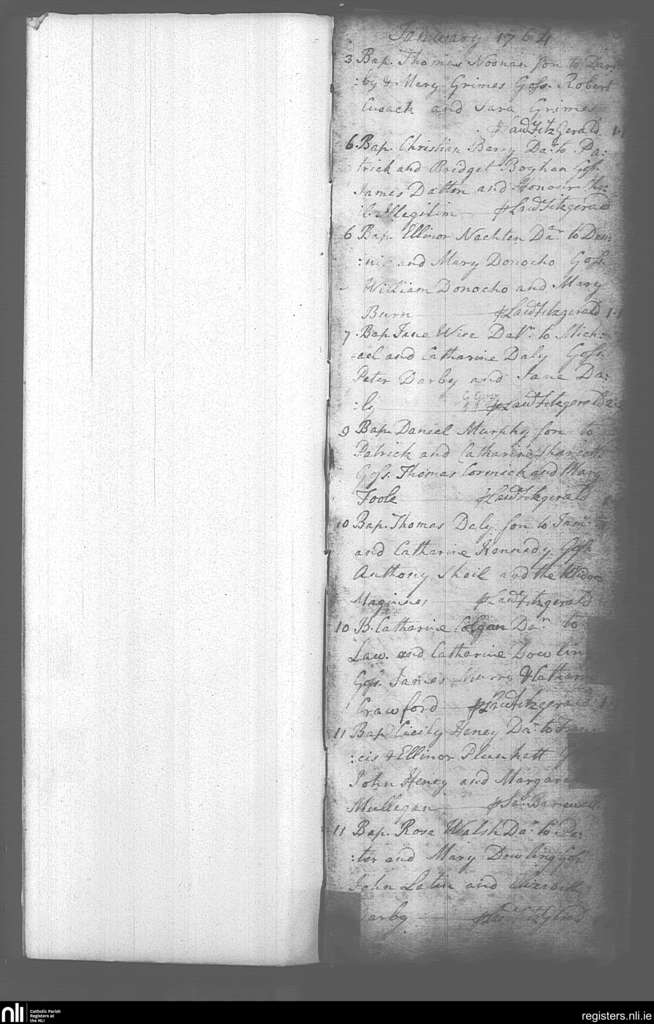 January 1764
3 Bap. Thomas Noonan son to Dar
:by & Mary Grimes Goss. Robert
Cusack and Sara Grimes
Lau: FitzGerald
6 Bap. Christian Berry Dar. to Pa:
:trick and Bridget Boghan Goss.
James Dalton and Honour
Illegitim Lau: Fitzgerald
6 Bap. Ellinor Nachten Dar. to Den
:nis and Mary Donocho Goss.
William Donocho and Mary
Burn Lau: Fitzgerald
7 Bap. Jane Wise Daur. to Mich:
:ael and Catharine Daly Goss.
Peter Darby and Jane Da:
:ly Lau: Fitzgerald
9 Bap. Daniel Murphy son to
Patrick and Catharine
Goss. Thomas Cormick and Mary
Toole Lau: Fitzgerald
10 Bap. Thomas Daly son to Jam
and Catharine Kennedy Goss
Anthony Sheil and the Widow
Lau: Fitzgerald
10 B. Catharine Colgan Dar. to
Law. and Catharine Dowlin
Goss. James Murry & Catharin
Crawford Lau: Fitzgerald
11 Bap. Cicily Heney Dar. to Fran
:cis & Ellinor Plunkett
John Heney and Margare
Mullegan
11 Bap. Rose Walsh Dar. to Pe
:ter and Mary Dowling Goss
John Lalin and
Darby
nli
Catholic Parish
Registers at
the NLI
registers.nli.ie